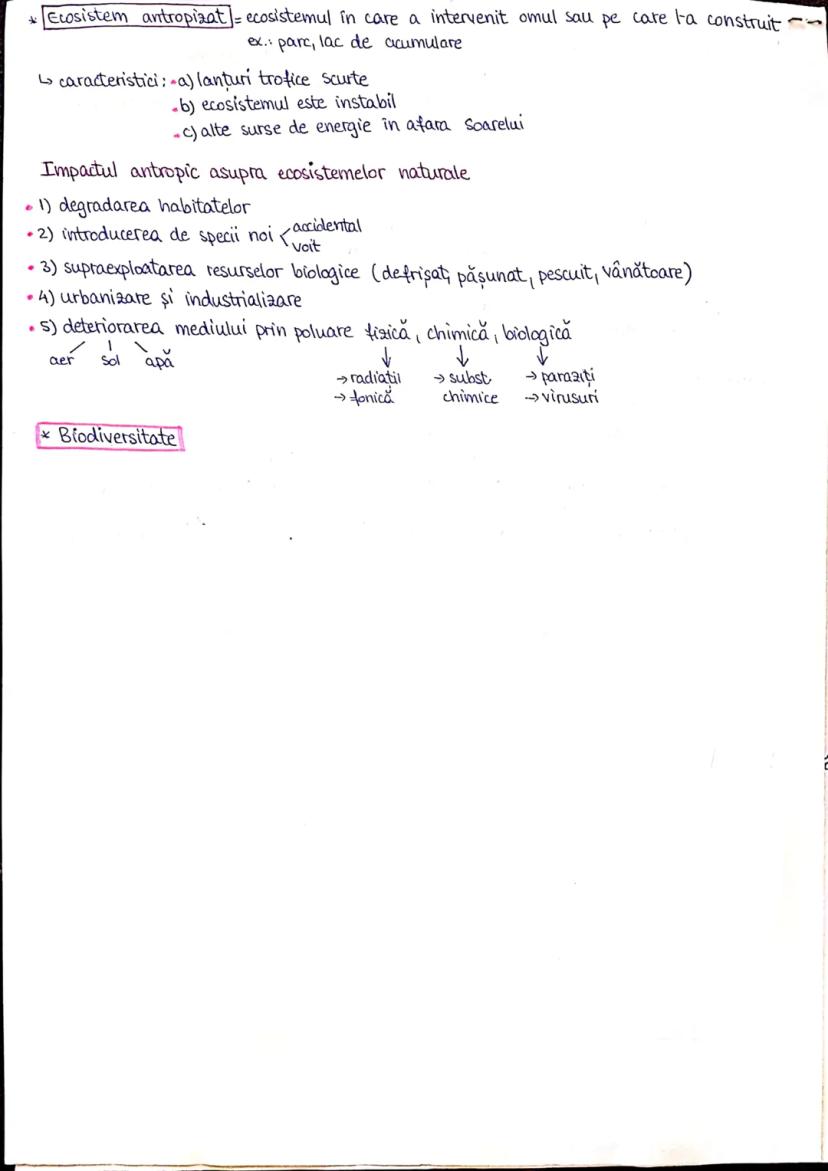 * Ecosistem antropizat = ecosistemul în care a intervenit omul sau pe care l-a construit
ex.: parc, lac de acumulare
↳ caracteristici: •a) lanțuri trofice scurte
•b) ecosistemul este instabil
•c) alte surse de energie în afara Soarelui
Impactul antropic asupra ecosistemelor naturale
• 1) degradarea habitatelor
• 2) introducerea de specii noi < accidental
voit
• 3) supraexploatarea resurselor biologice (defrișat, pășunat, pescuit, vânătoare)
• 4) urbanizare și industrializare
• 5) deteriorarea mediului prin poluare fizică, chimică, biologică
aer sol apă
→ radiații → subst. → paraziți
→ fonică chimice → virusuri
* Biodiversitate